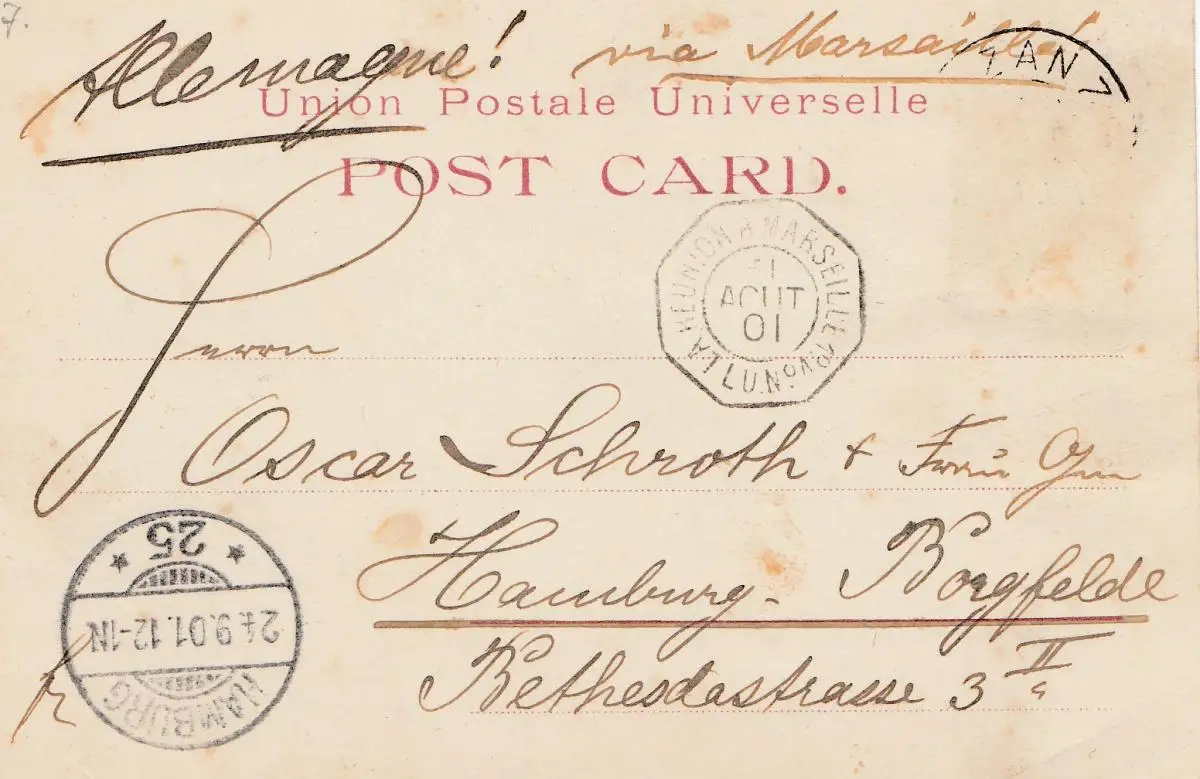 7.
Allemagne! via Marseille!
ZAN
Union Postale Universelle
POST CARD.
LA REUNION A MARSEILLE
LU.Nº
AOUT
01
Herrn
Oscar Schroth & Frau
25
Hamburg-Borgfelde
24.9.01.12-1N
Bethesdastrasse 3 II
HAMBURG